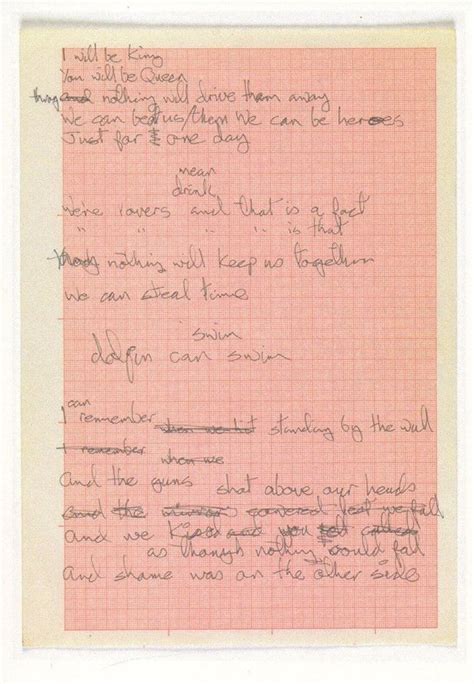 I will be King
You will be Queen
thoug and nothing will drive them away
We can beat us/them We can be heroes
Just for one day
mean
drink
We're lovers and that is a fact
" " " " is that
though nothing will keep us together
We can steal time
swim
dolfin can swim
can
I remember when we standing by the wall
I remember when we
And the guns shot above our heads
and the covered lest we fall
and we Kissed and you
as though nothing could fall
And shame was on the other side